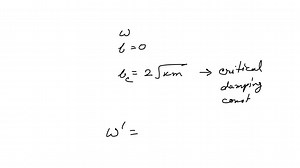 ω
b = 0
b_c = 2√km → critical
damping
const
ω' =